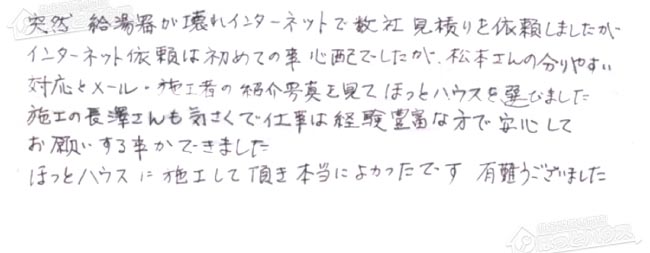 突然 給湯器が壊れインターネットで数社 見積りを依頼しましたが
インターネット依頼は初めての事 心配でしたが、松本さんの分りやすい
対応とメール・施工者の紹介写真を見て ほっとハウスを選びました
施工の長澤さんも気さくで仕事は経験豊富な方で安心して
お願いする事ができました
ほっとハウスに施工して頂き本当によかったです 有難うございました
ほっとハウス